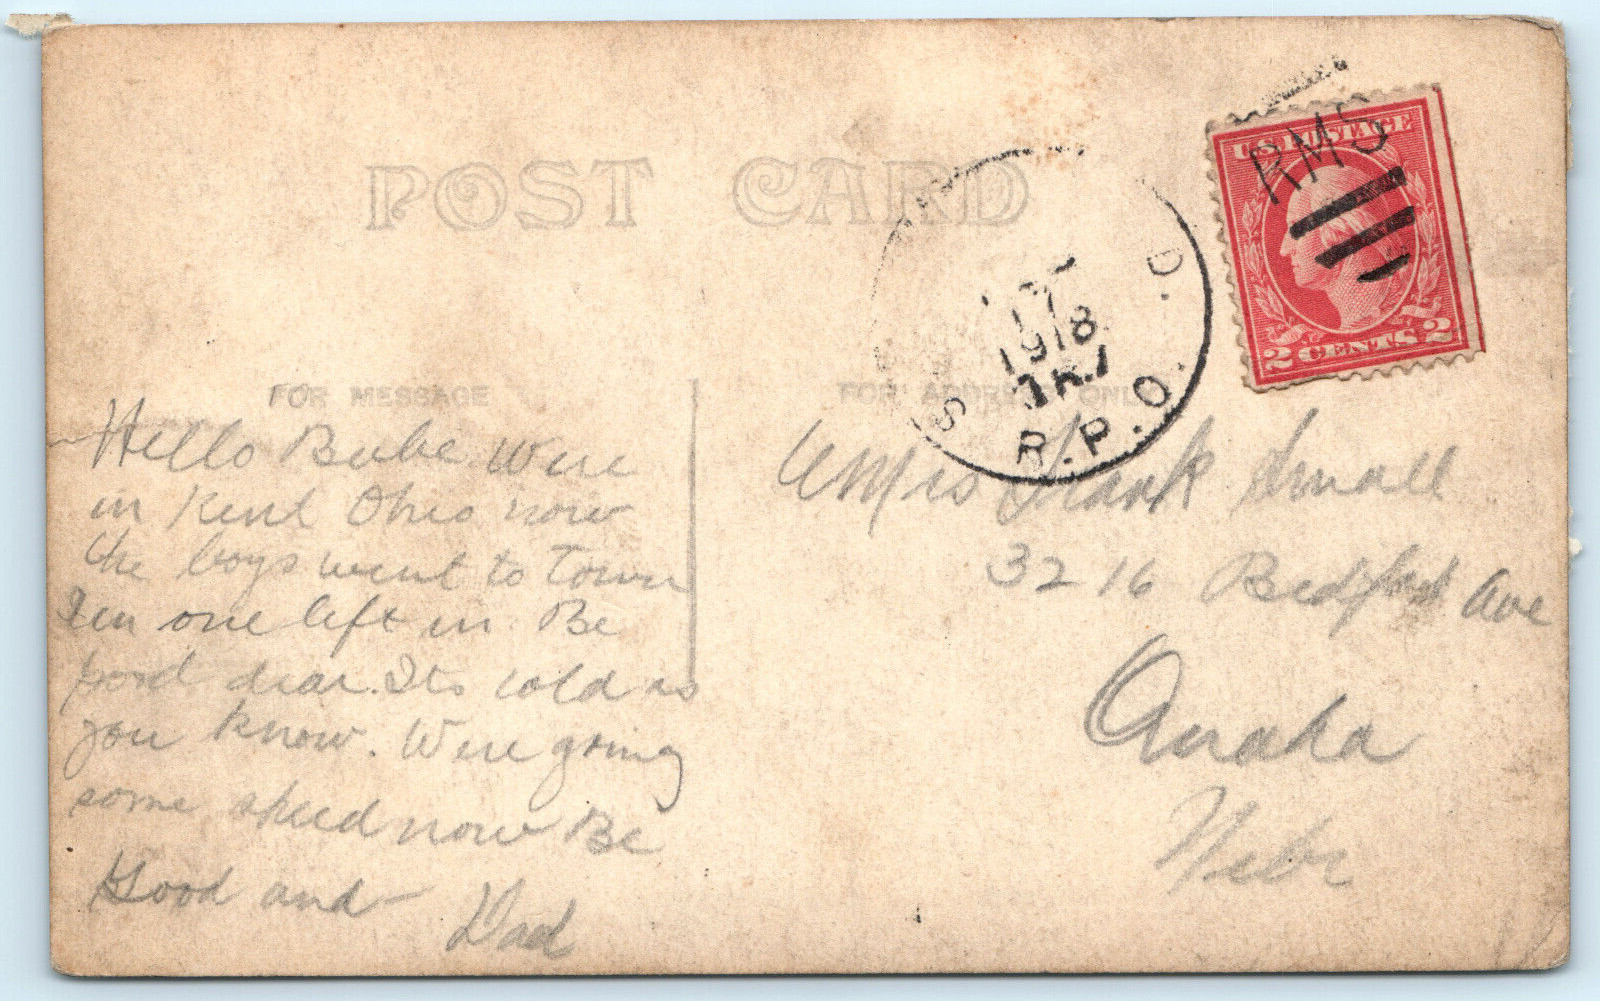 POST CARD
FOR MESSAGE
FOR ADDRESS ONLY
U.S. POSTAGE
2 CENTS 2
RMS
17
1918
TR.1
S
D.
R.P.O.
Hello Bube Were
in Kent Ohio now
the boys went to Town
Im one left in. Be
good dear. Its cold as
you know. Were going
some speed now Be
Good and
Dad
Mrs Frank Small
3216 Bedford Ave
Omaha
Nebr